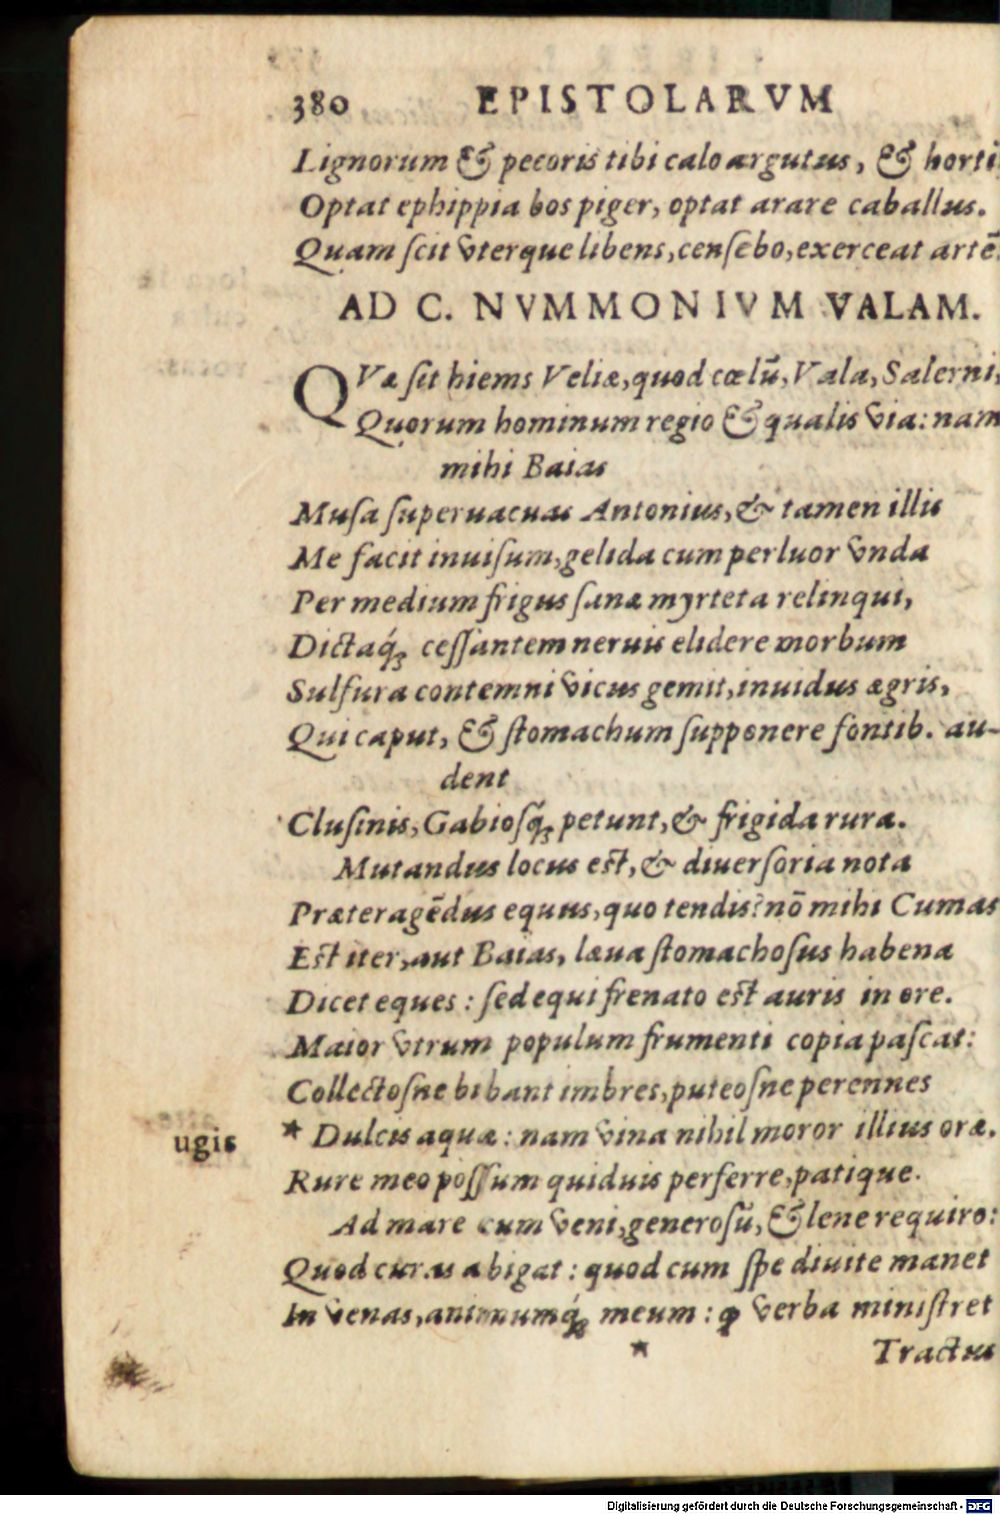 380 EPISTOLARVM
Lignorum & pecoris tibi calo argutus, & horti
Optat ephippia bos piger, optat arare caballus.
Quam ſcit vterque libens, cenſebo, exerceat artē.
AD C. NVMMONIVM VALAM.
QVæ ſit hiems Veliæ, quod cœlū, Vala, Salerni,
Quorum hominum regio & qualis via: nam
mihi Baias
Muſa ſuperuacuas Antonius, & tamen illis
Me facit inuiſum, gelida cum perluor vnda
Per medium frigus ſanæ myrteta relinqui,
Dictaq́ꝫ ceſſantem neruis elidere morbum
Sulfura contemni vicus gemit, inuidus ægris,
Qui caput, & ſtomachum ſupponere fontib. au-
dent
Cluſinis, Gabioſq́ꝫ petunt, & frigida rura.
Mutandus locus eſt, & diuerſoria nota
Præteragēdus equus, quo tendis? nō mihi Cumas
Eſt iter, aut Baias, læua ſtomachoſus habena
Dicet eques: ſed equi frenato eſt auris in ore.
Maior vtrum populum frumenti copia paſcat:
Collectoſne bibant imbres, puteoſne perennes
ugis * Dulcis aquæ: nam vina nihil moror illius oræ.
Rure meo poſſum quiduis perferre, patique.
Ad mare cum veni, generoſū, & lene requiro:
Quod curas abigat: quod cum ſpe diuite manet
In venas, animumq́ꝫ meum: ꝙ verba miniſtret
* Tractus
Digitalisierung gefördert durch die Deutsche Forschungsgemeinschaft - DFG